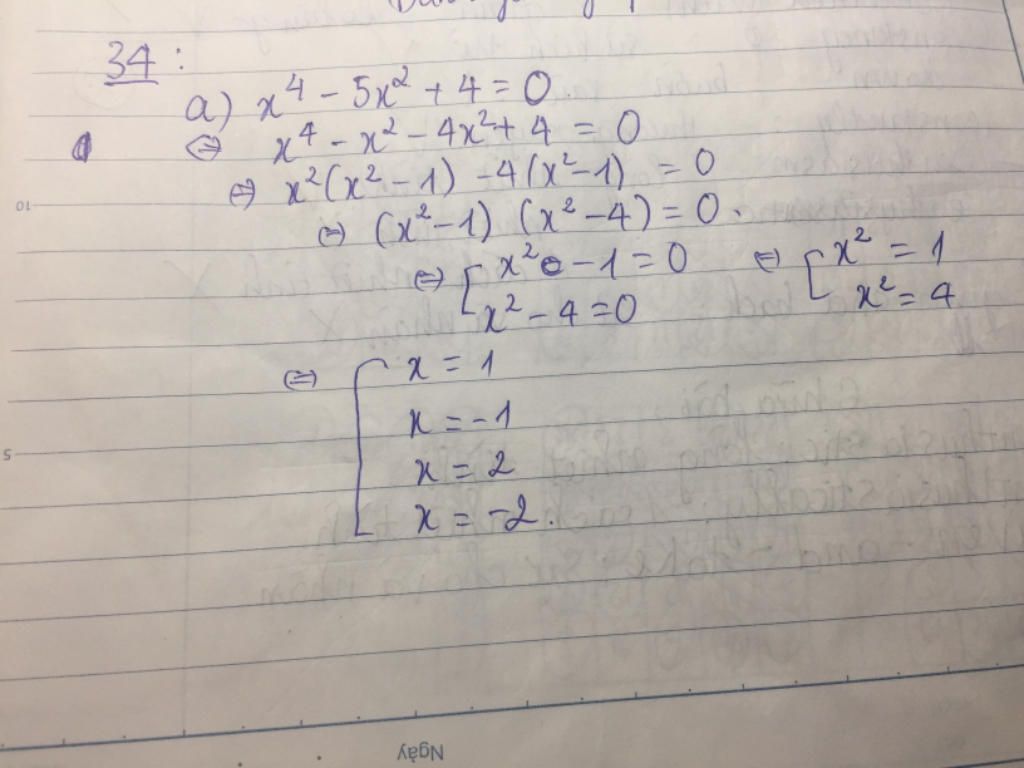 34:
a) x⁴ - 5x² + 4 = 0
⇔ x⁴ - x² - 4x² + 4 = 0
⇔ x²(x² - 1) - 4(x² - 1) = 0
⇔ (x² - 1) (x² - 4) = 0.
⇔ [ x² - 1 = 0 ⇔ [ x² = 1
x² - 4 = 0 x² = 4
⇔ [ x = 1
x = -1
x = 2
x = -2.
10
5
Ngày